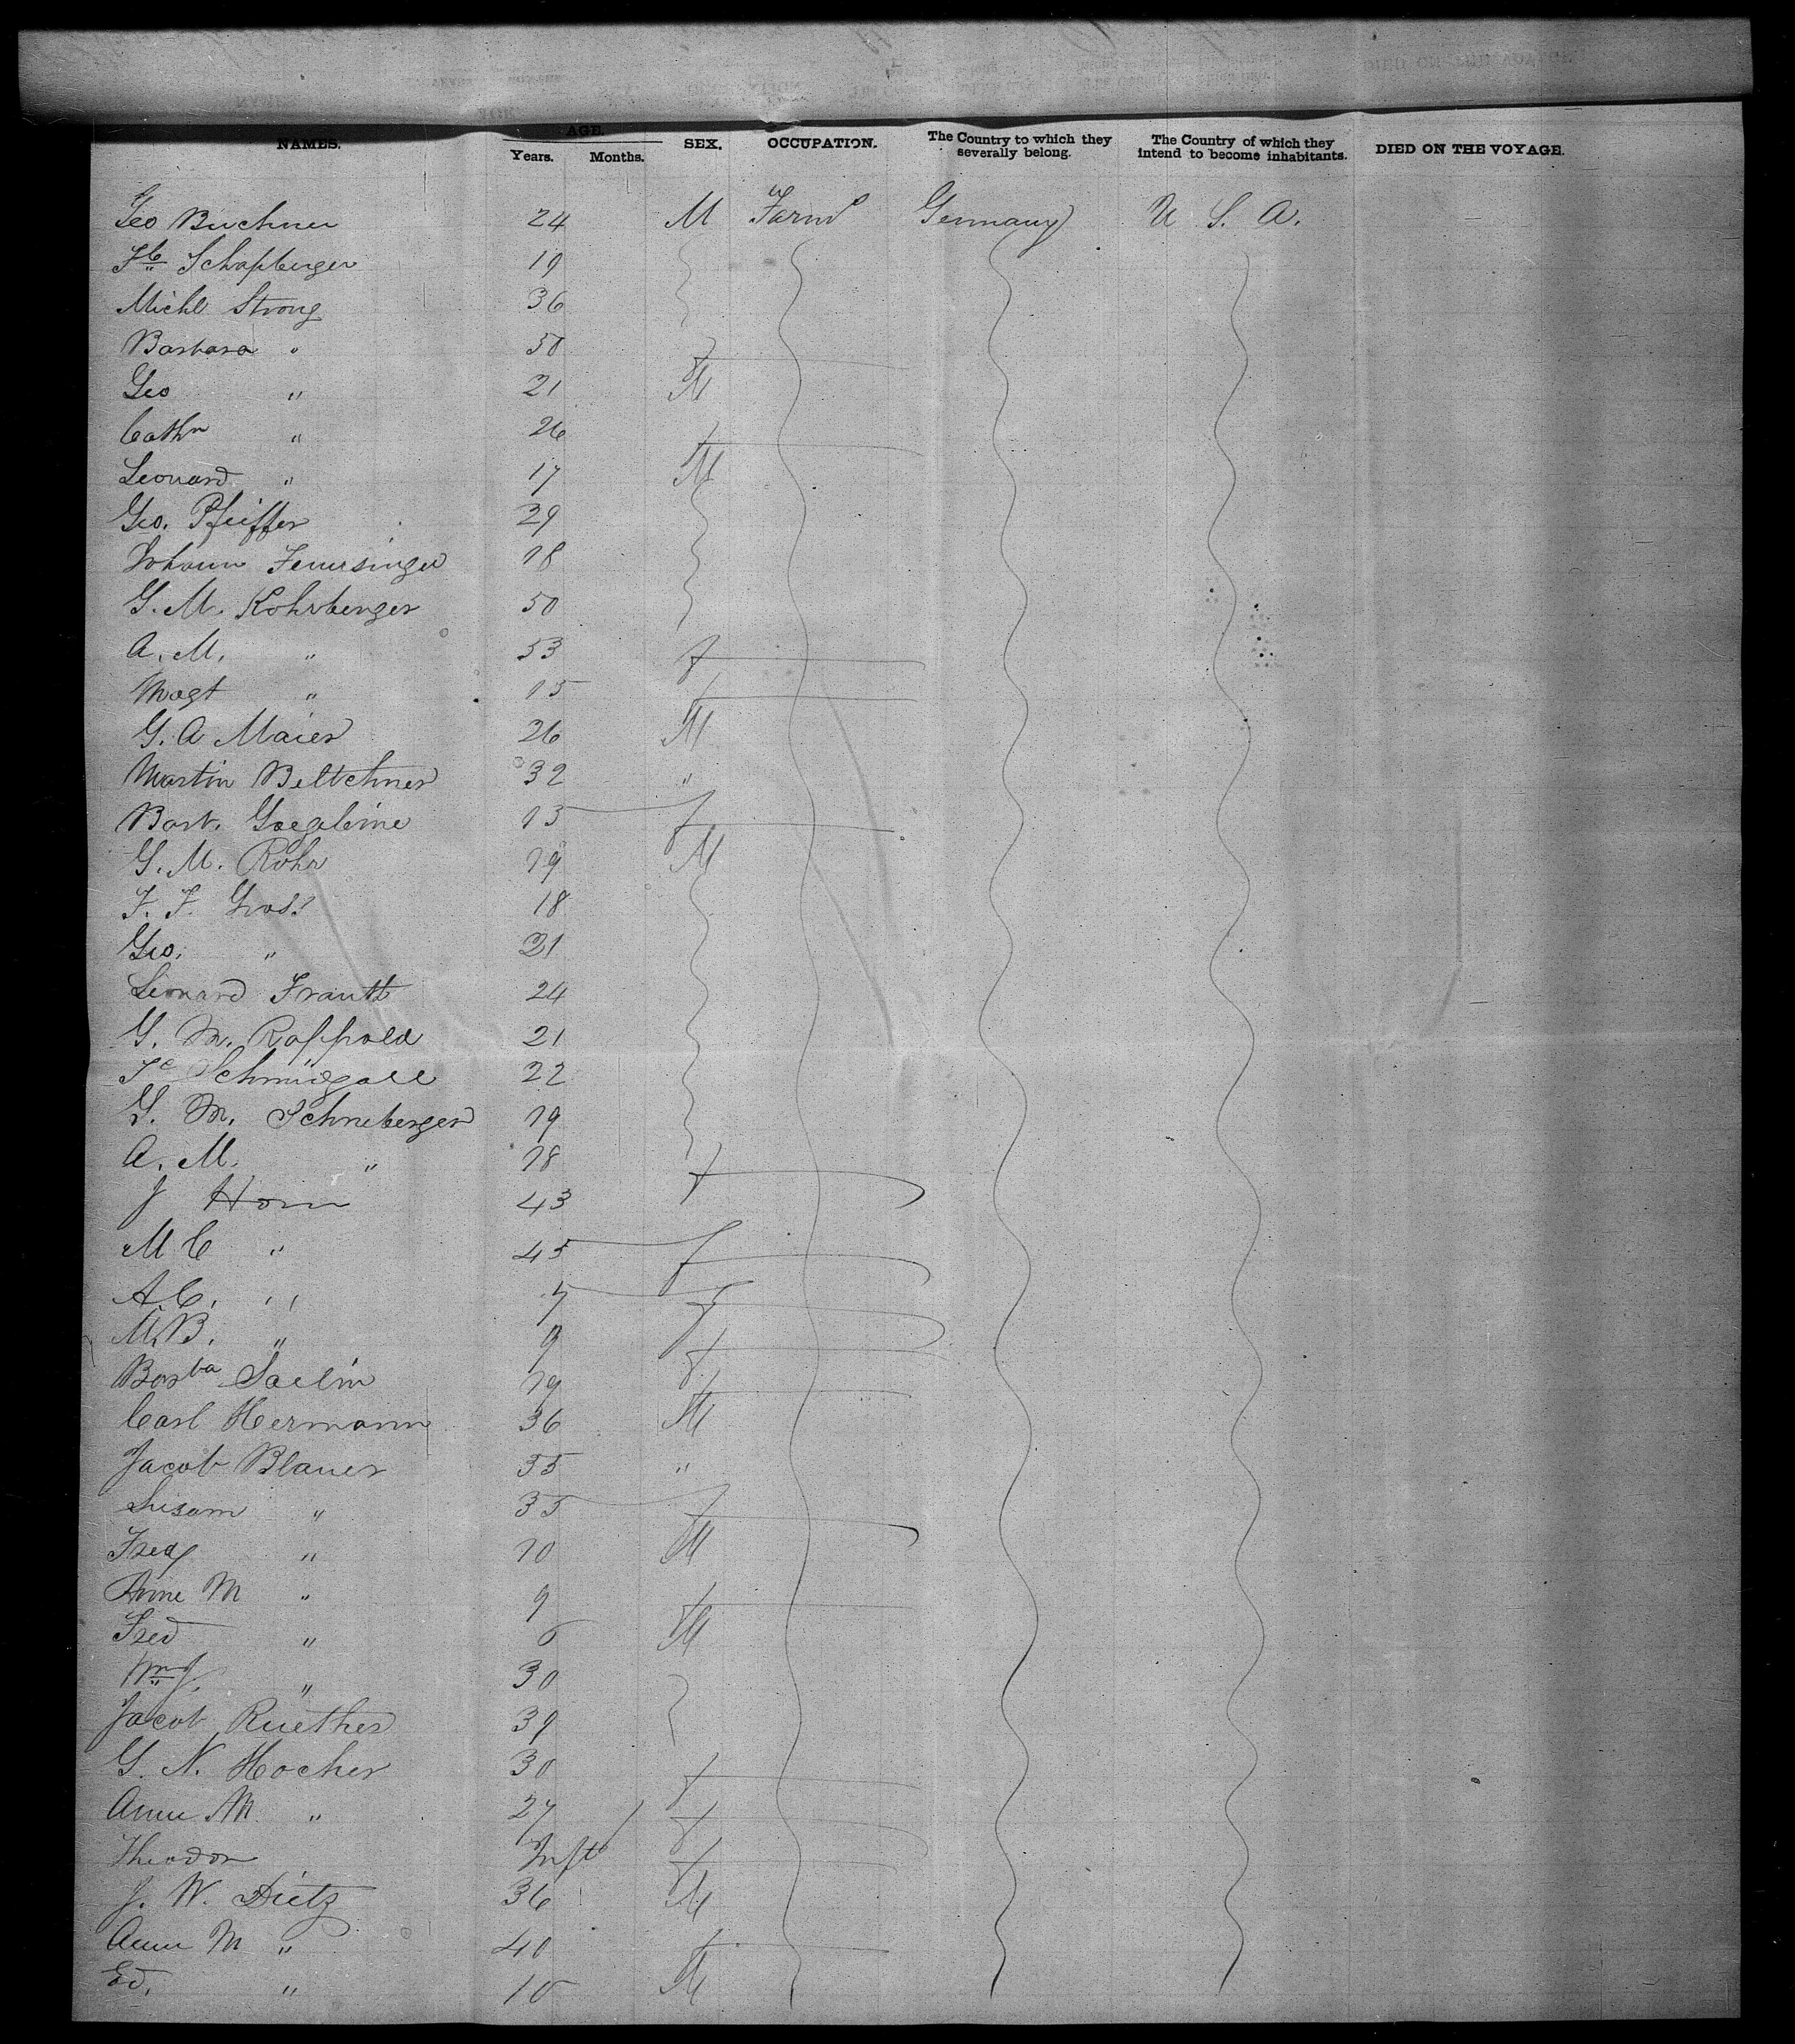 NAMES. AGE. SEX. OCCUPATION. The Country to which they severally belong. The Country of which they intend to become inhabitants. DIED ON THE VOYAGE.
Years. Months.
Geo Buchner 24 M Farmr Germany U. S. A.
Schafberger 19
Michl Strong 36
Barbara " 50 f
Geo " 21 M
Cathn " 26 f
Leonard " 17 M
Geo. Pfeiffer 29
Johann Feuersinger 18
G. M. Rohrberger 50
A. M. " 53 f
Magt " 15 f
G. A Maier 26 M
Martin Beltchner 32 "
Barb. 13 f
G. M. Rohr 19 M
F. F. Gross 18
Geo. " 21
Leonard Frauth 24
G. M. Rappold 21
Schmidgall 22
G. M. Schneberger 19
A. M. " 18 f
J Horn 43
M C " 45 f
A. C. " 7 f
M. B. " 9 f
Barba Saelin 19 f
Carl Hermann 36 M
Jacob Blauer 35 "
Susam " 35 f
Fred " 10 M
Anne M " 9 f
Fred " 6 M
Wm J. " 30
Jacob Ruether 39
G. N. Hocher 30 f
Anna M. " 27 f
Theodor Inft f
J. W. Dietz 36 M
Anna M " 40 f
Ed. " 10 M